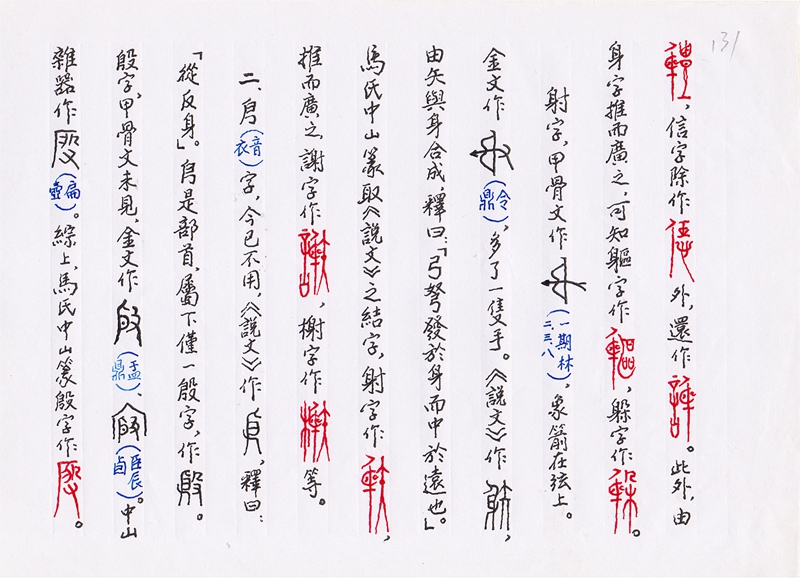 131
，信字除作　外，還作　。此外，由
身字推而廣之，可知軀字作　，躲字作　。
射字，甲骨文作　（一期林二．三．八），象箭在弦上。
金文作　（令鼎），多了一隻手。《說文》作　，
由矢與身合成，釋曰：「弓弩發於身而中於遠也」。
馬氏中山篆取《說文》之結字，射字作　，
推而廣之，謝字作　，榭字作　等。
二、㐆（音衣）字，今已不用，《說文》作　，釋曰：
「從反身」。㐆是部首，屬下僅一殷字，作　。
殷字，甲骨文未見，金文作　（盂鼎）、　（臣辰卣）。中山
雜器作　（扁壺）。綜上，馬氏中山篆殷字作　。